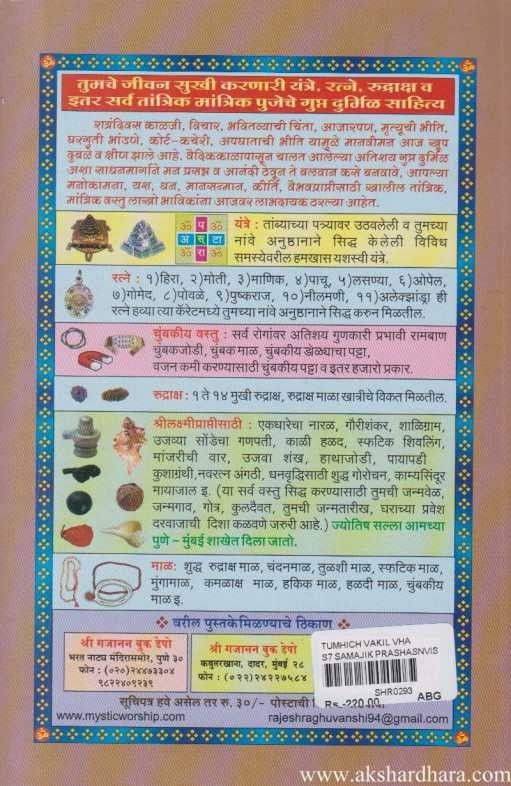 तुमचे जीवन सुखी करणारी यंत्रे, रत्ने, रुद्राक्ष व
इतर सर्व तांत्रिक मांत्रिक पुजेचे गुप्त दुर्मिळ साहित्य
रात्रंदिवस काळजी, विचार, भवितव्याची चिंता, आजारपण, मृत्यूची भीति,
घरगुती भांडणे, कोर्ट-कचेरी, अपघाताची भीति यामुळे मानवीमन आज खूप
दुबळे व क्षीण झाले आहे. वैदिककाळापासून चालत आलेल्या अतिशय गुप्त दुर्मिळ
अशा साधनमार्गाने मन प्रसन्न व आनंदी ठेवून ते बलवान कसे बनवावे, आपल्या
मनोकामना, यश, धन, मानसन्मान, कीर्ति, वैभवप्राप्तीसाठी खालील तांत्रिक,
मांत्रिक वस्तु लाखो भाविकांना आजवर लाभदायक ठरल्या आहेत.
ॐ प ॐ
अ स् टा
ॐ रा ॐ
यंत्रे : तांब्याच्या पत्र्यावर उठवलेली व तुमच्या
नांवे अनुष्ठानाने सिद्ध केलेली विविध
समस्येवरील हमखास यशस्वी यंत्रे.
रत्ने : १)हिरा, २)मोती, ३)माणिक, ४)पाचू, ५)लसण्या, ६)ओपेल,
७)गोमेद, ८)पोवळे, ९)पुष्कराज, १०)नीलमणी, ११)अलेक्झांड्रा ही
रत्ने हव्या त्या कॅरेटमध्ये तुमच्या नांवे अनुष्ठानाने सिद्ध करुन मिळतील.
चुंबकीय वस्तु : सर्व रोगांवर अतिशय गुणकारी प्रभावी रामबाण
चुंबकजोडी, चुंबक माळ, चुंबकीय खेळध्याचा पट्टा,
वजन कमी करण्यासाठी चुंबकीय पट्टा व इतर हजारो प्रकार.
रुद्राक्ष : १ ते १४ मुखी रुद्राक्ष, रुद्राक्ष माळा खात्रीचे विकत मिळतील.
श्रीलक्ष्मीप्राप्तीसाठी : एकधारेचा नारळ, गौरीशंकर, शाळिग्राम,
उजव्या सोंडेचा गणपती, काळी हळद, स्फटिक शिवलिंग,
मांजरीची वार, उजवा शंख, हाथाजोडी, पायापडी
कुशाग्रंथी,नवरत्न अंगठी, धनवृद्धिसाठी शुद्ध गोरोचन, काम्यसिंदूर
मायाजाल इ. (या सर्व वस्तु सिद्ध करण्यासाठी तुमची जन्मवेळ,
जन्मगाव, गोत्र, कुलदैवत, तुमची जन्मतारीख, घराच्या प्रवेश
दरवाजाची दिशा कळवणे जरुरी आहे.) ज्योतिष सल्ला आमच्या
पुणे – मुंबई शाखेत दिला जातो.
माळ: शुद्ध रुद्राक्ष माळ, चंदनमाळ, तुळशी माळ, स्फटिक माळ,
मुंगामाळ, कमळाक्ष माळ, हकिक माळ, हळदी माळ, चुंबकीय
माळ इ.
वरील पुस्तके मिळण्याचे ठिकाण
श्री गजानन बुक डेपो
भरत नाट्य मंदिरासमोर, पुणे ३०
फोन : (०२०)२४४७३३०४
९८२२४०९२३९
श्री गजानन बुक डेपो
कबुतरखाना, दादर, मुंबई २८
फोन : (०२२)२४२२७५८४
TUMHICH VAKIL VHA
S7 SAMAJIK PRASHASNVIS
SHR0293
Rs. 220.00
ABG
सूचिपत्र हवे असेल तर रु. ३०/- पोस्टाची
www.mysticworship.com
rajeshraghuvanshi94@gmail.com
www.akshardhara.com